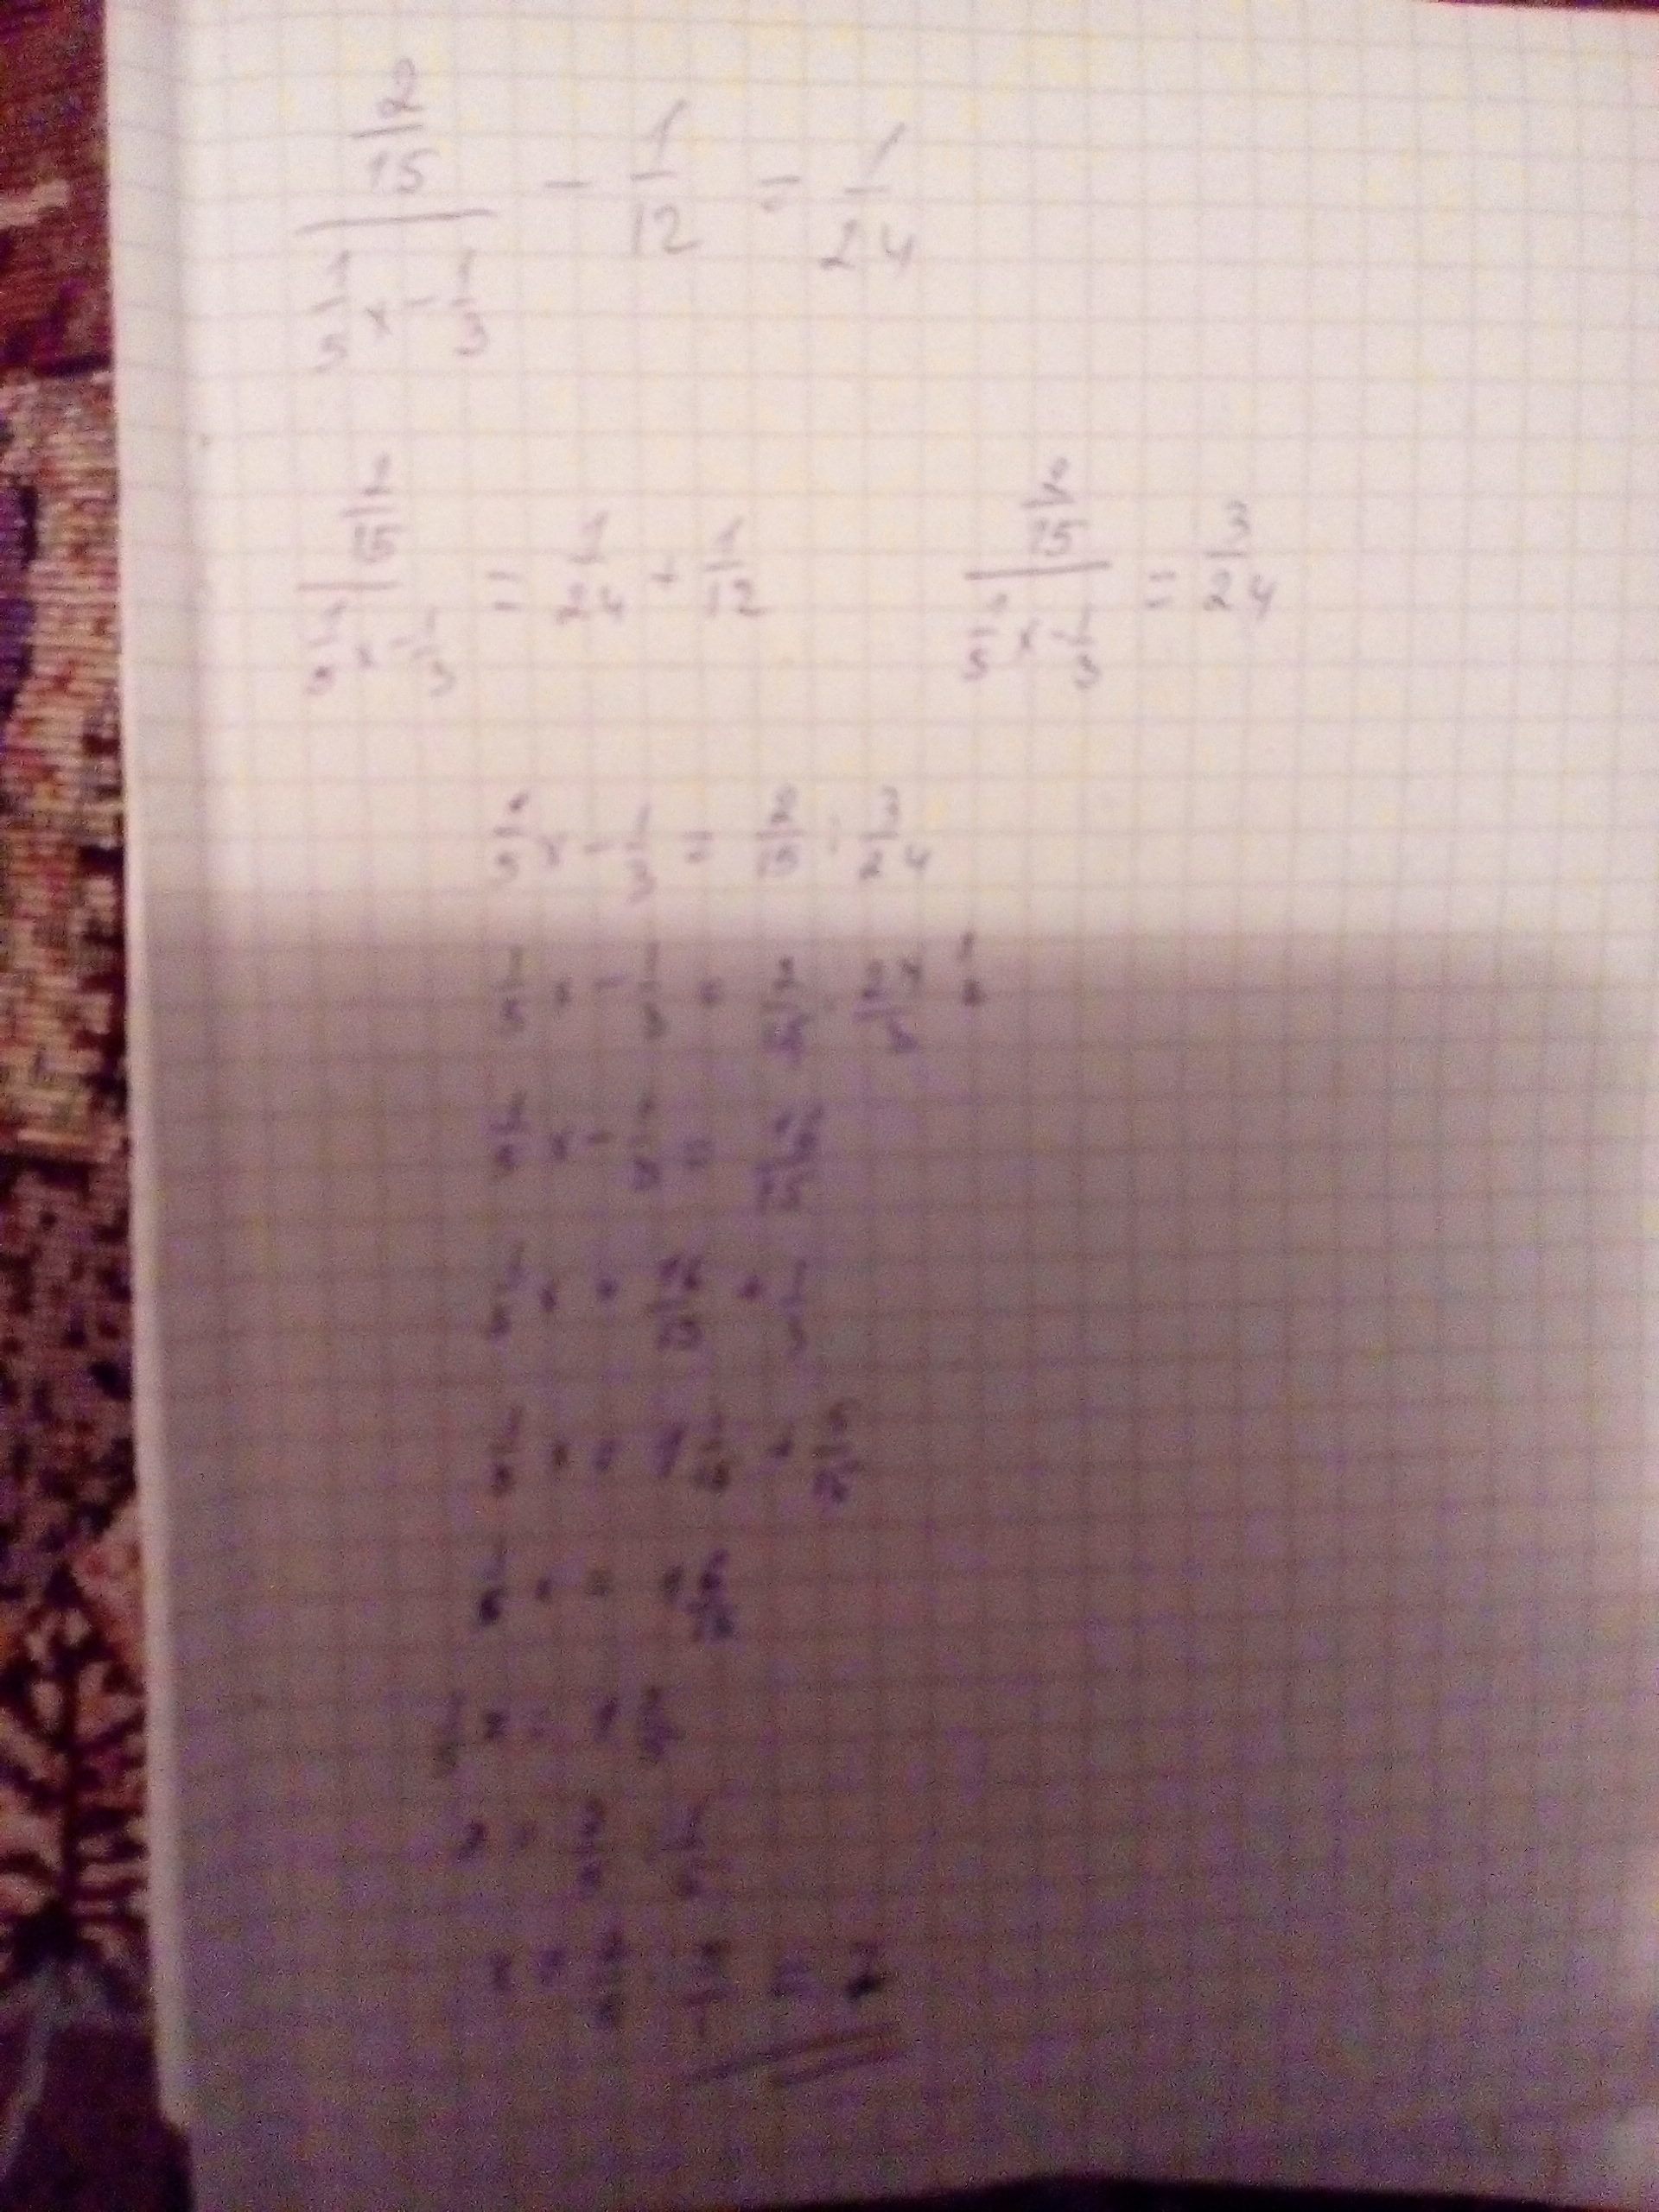 (2/15)/(1/5 x - 1/3) - 1/12 = 1/24
(2/15)/(1/5 x - 1/3) = 1/24 + 1/12 (2/15)/(1/5 x - 1/3) = 3/24
1/5 x - 1/3 = 2/15 : 3/24
1/5 x - 1/3 = 2/15 · 24/3
1/5 x - 1/3 = 16/15
1/5 x = 16/15 + 1/3
1/5 x = 1 1/15 + 5/15
1/5 x = 1 6/15
1/5 x = 1 2/5
x = 7/5 : 1/5
x = 7/5 · 5/1 = 7